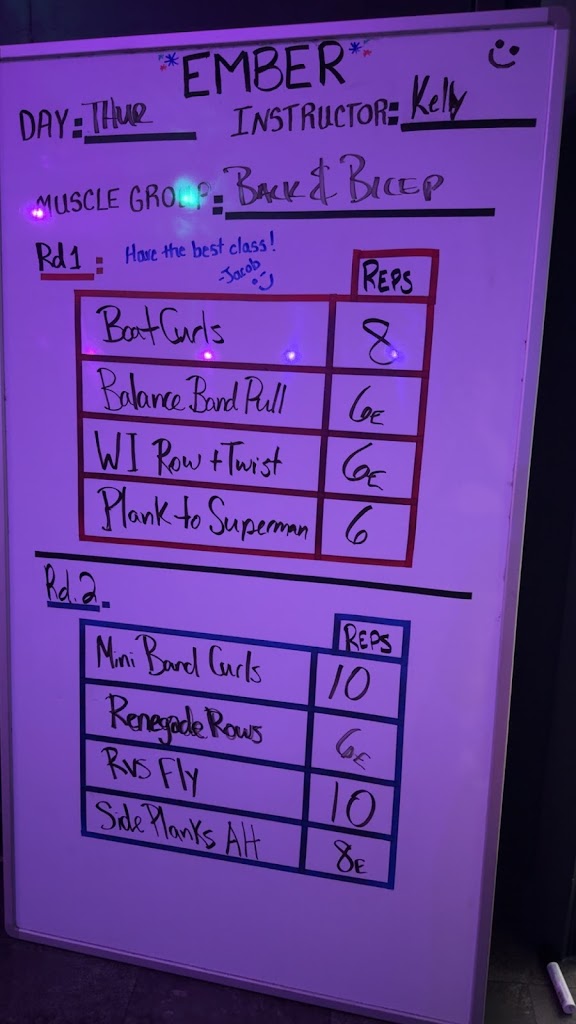 *EMBER*
DAY: THUR INSTRUCTOR: Kelly
MUSCLE GROUP: BACK & BICEP
Rd1: Have the best class!
-Jacob
REPS
Boat Curls 8
Balance Band Pull 6E
WI Row + Twist 6E
Plank to Superman 6
Rd.2.
REPS
Mini Band Curls 10
Renegade Rows 6E
Rvs Fly 10
Side Planks Alt 8E